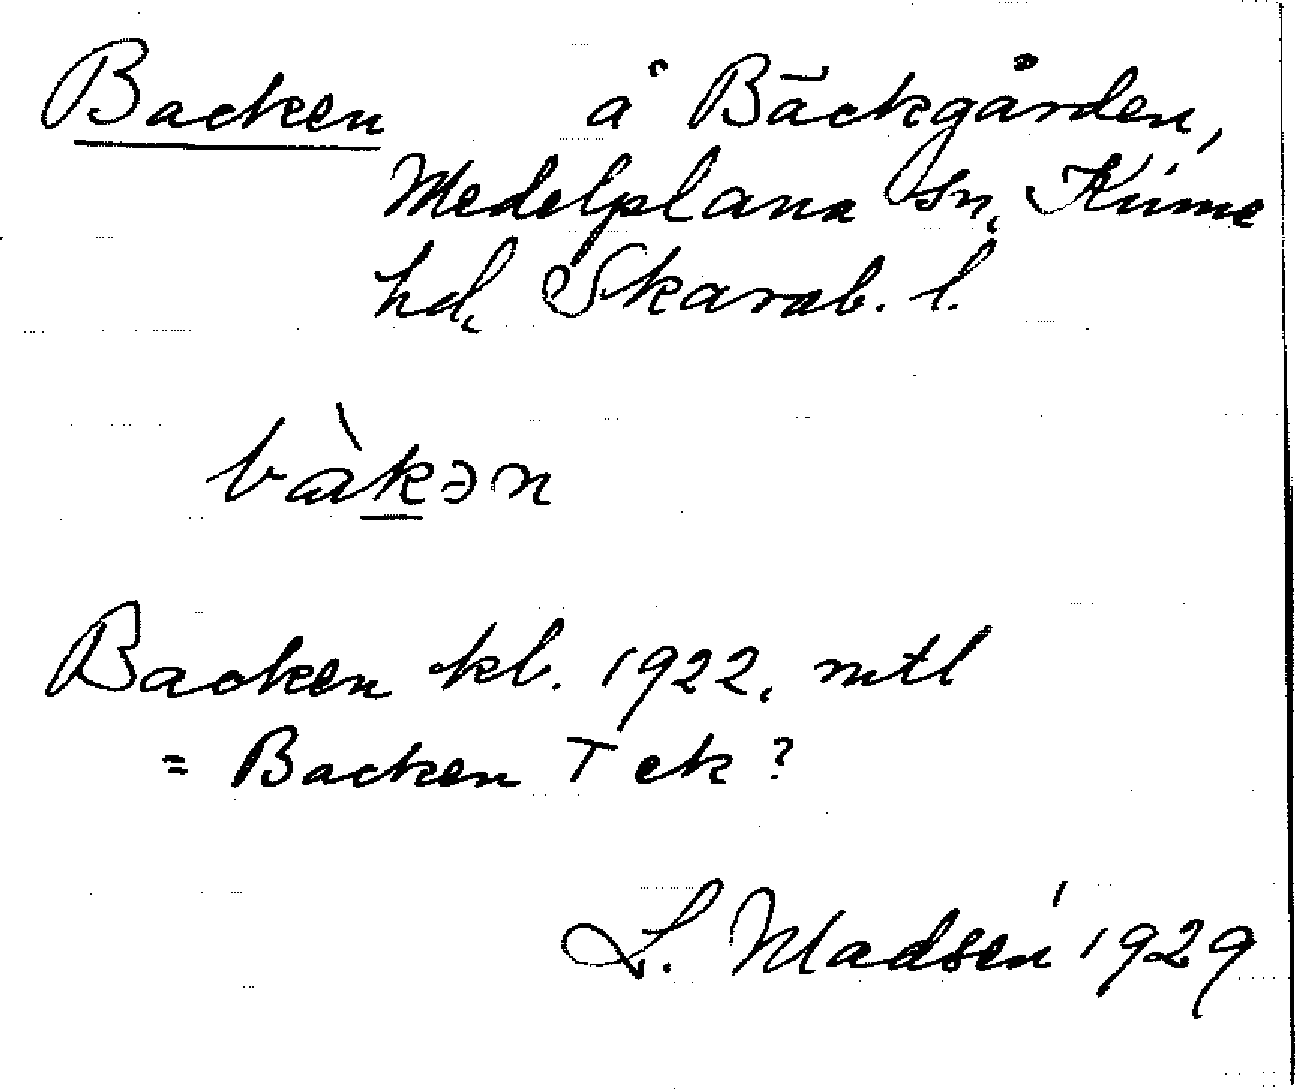 Backen å Bäckgården,
Medelplana sn, Kinne
hd, Skarab. l.
bàkən
Backen kb. 1922, mtl
= Backen T ek?
L. Madsén 1929